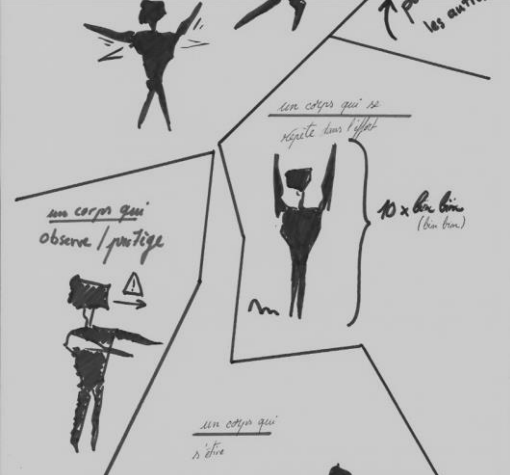 les
un corps qui se
répète dans l'effort
10 x bin bin
(bin bin)
un corps qui
observe / protège
un corps qui
s'étire